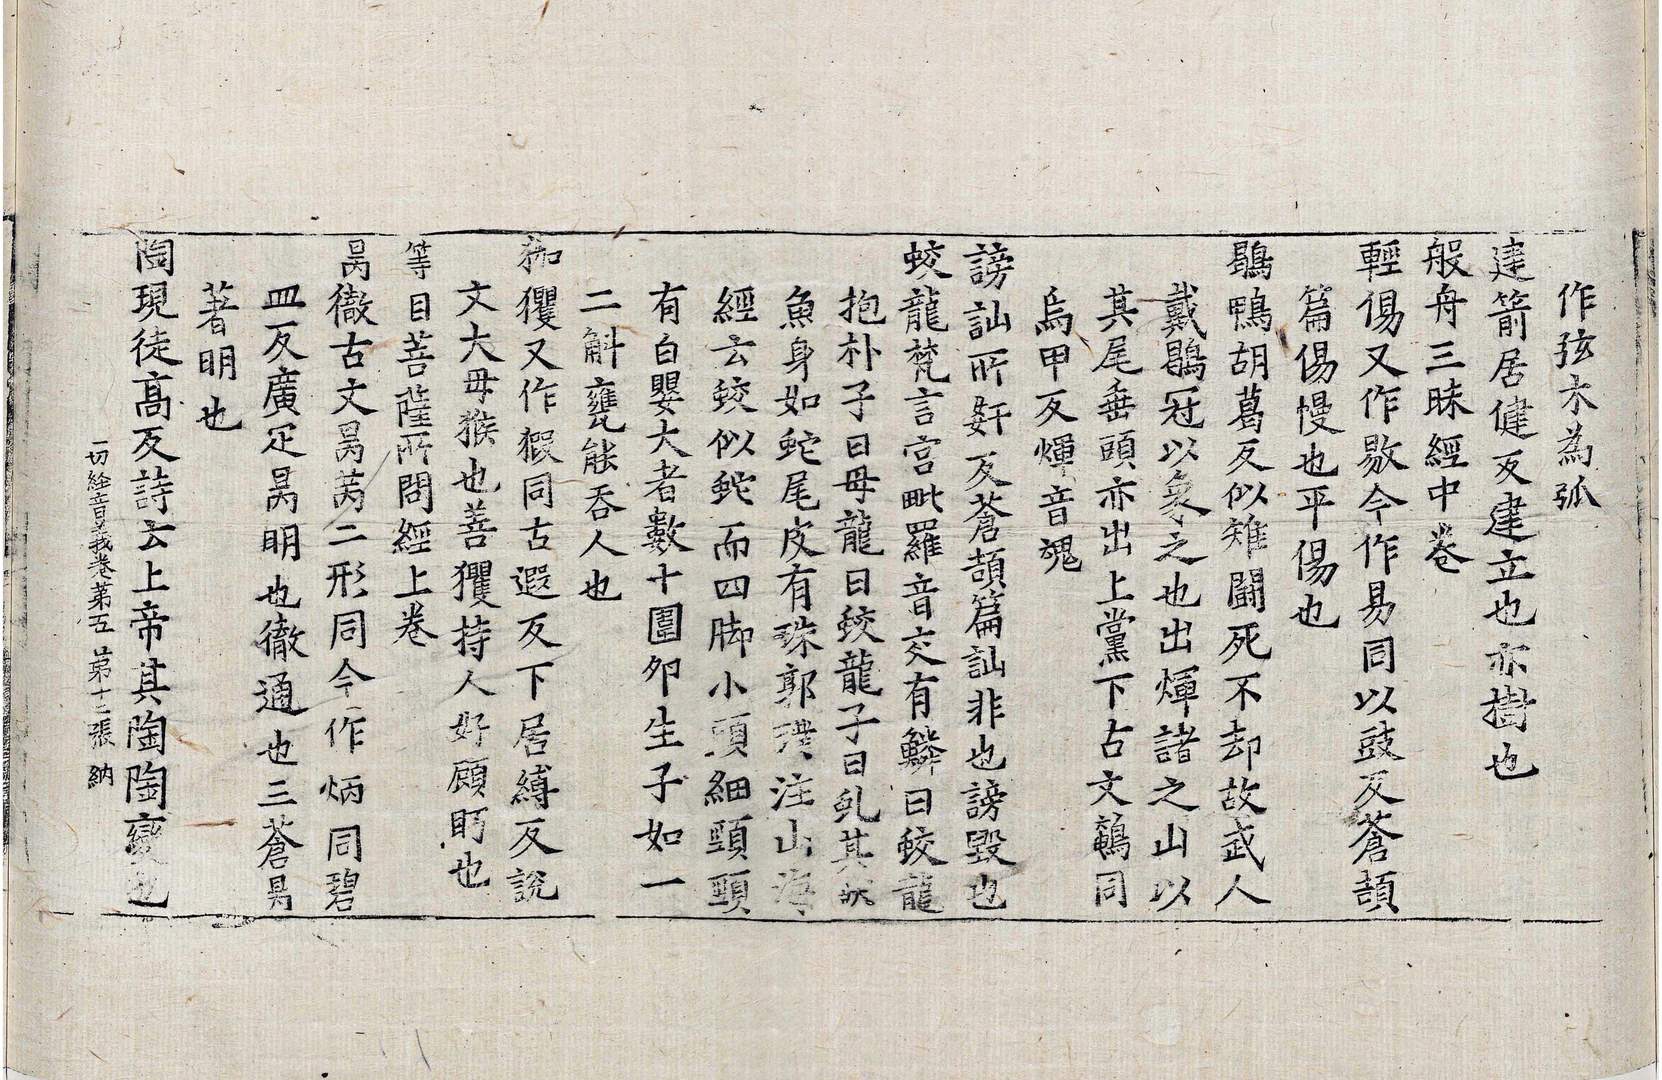 作弦木為弧
建箭居健反建立也亦樹也
般舟三昧經中卷
輕傷又作敭今作易同以豉反蒼頡
篇傷慢也平傷也
鶡鴨胡葛反似雉鬪死不却故武人
戴鶡冠以象之也出煇諸之山以
其尾垂頭亦出上黨下古文鵪同
烏甲反煇音魂
謗訕所姧反蒼頡篇訕非也謗毀也
蛟龍梵言宮毗羅音交有鱗曰蛟龍
抱朴子曰母龍曰蛟龍子曰虬其狀
魚身如蛇尾皮有珠郭璞注山海
經云蛟似蛇而四脚小頭細頸頸
有白嬰大者數十圍夘生子如一
二斛甕能吞人也
猳玃又作猳同古遐反下居縛反說
文大母猴也善玃持人好顧眄也
等目菩薩所問經上卷
昺徹古文昺苪二形同今作炳同碧
皿反廣疋昺明也徹通也三蒼昺
著明也
陶現徒高反詩云上帝其陶陶變也
一切經音義卷第五 第十三張 納